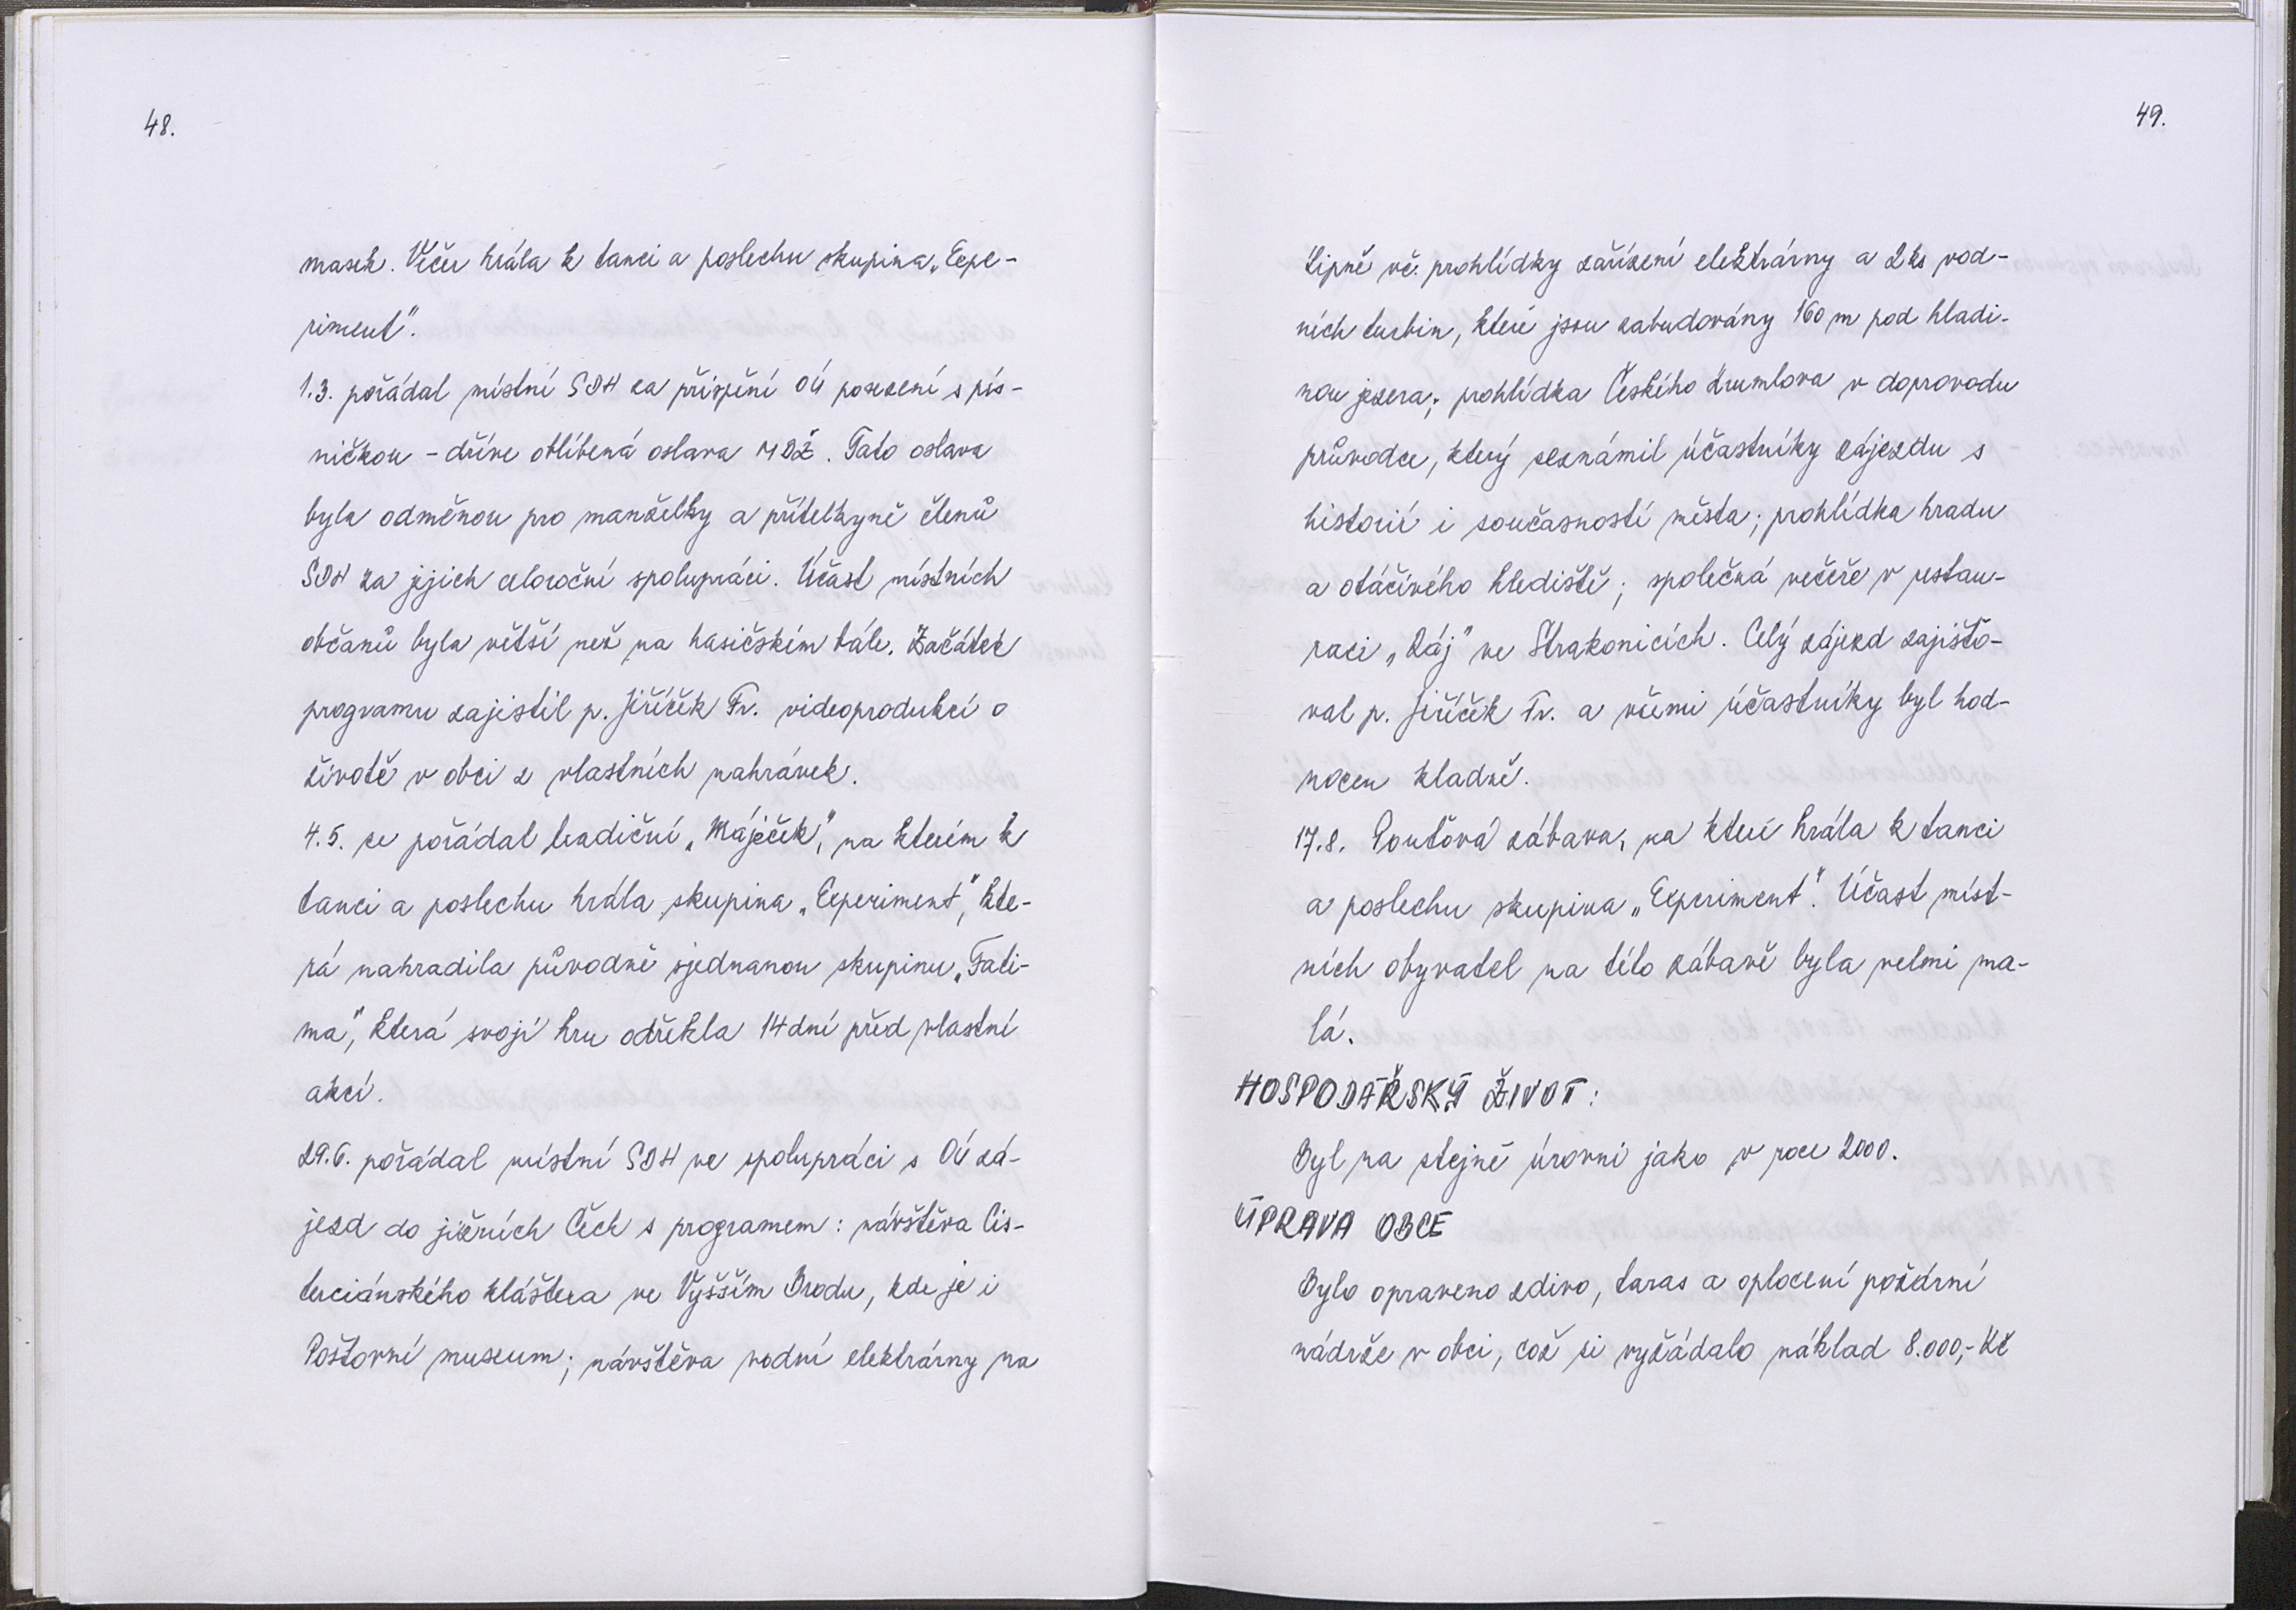 48.
masek. Večer hrála k tanci a poslechu skupina „Expe-
riment".
1.3. pořádal místní SDH za přispění OÚ posezení s pís-
ničkou - dříve oblíbená oslava MDŽ. Tato oslava
byla odměnou pro manželky a přítelkyně členů
SDH za jejich celoroční spolupráci. Účast místních
občanů byla větší než na hasičském bále. Začátek
programu zajistil p. Jiříček Fr. videoprodukcí o
životě v obci z vlastních nahrávek.
4.5. se pořádal tradiční „Máječek", na kterém k
tanci a poslechu hrála skupina „Experiment", kte-
rá nahradila původně sjednanou skupinu „Fati-
ma", která svoji hru odřekla 14 dní před vlastní
akcí.
29.6. pořádal místní SDH ve spolupráci s OÚ zá-
jezd do jižních Čech s programem: návštěva Cis-
terciánského kláštera ve Vyšším Brodu, kde je i
Poštovní museum; návštěva vodní elektrárny na
49.
Lipně vč. prohlídky zařízení elektrárny a 2 ks vod-
ních turbin, které jsou zabudovány 160 m pod hladi-
nou jezera; prohlídka Českého Krumlova v doprovodu
průvodce, který seznámil účastníky zájezdu s
historií i současností města; prohlídka hradu
a otáčivého hlediště; společná večeře v restau-
raci „Ráj" ve Strakonicích. Celý zájezd zajišťo-
val p. Jiříček Fr. a všemi účastníky byl hod-
nocen kladně.
17.8. Pouťová zábava, na které hrála k tanci
a poslechu skupina „Experiment". Účast míst-
ních obyvatel na této zábavě byla velmi ma-
lá.
HOSPODÁŘSKÝ ŽIVOT:
Byl na stejné úrovni jako v roce 2000.
ÚPRAVA OBCE
Bylo opraveno zdivo, taras a oplocení požární
nádrže v obci, což si vyžádalo náklad 8.000,- Kč